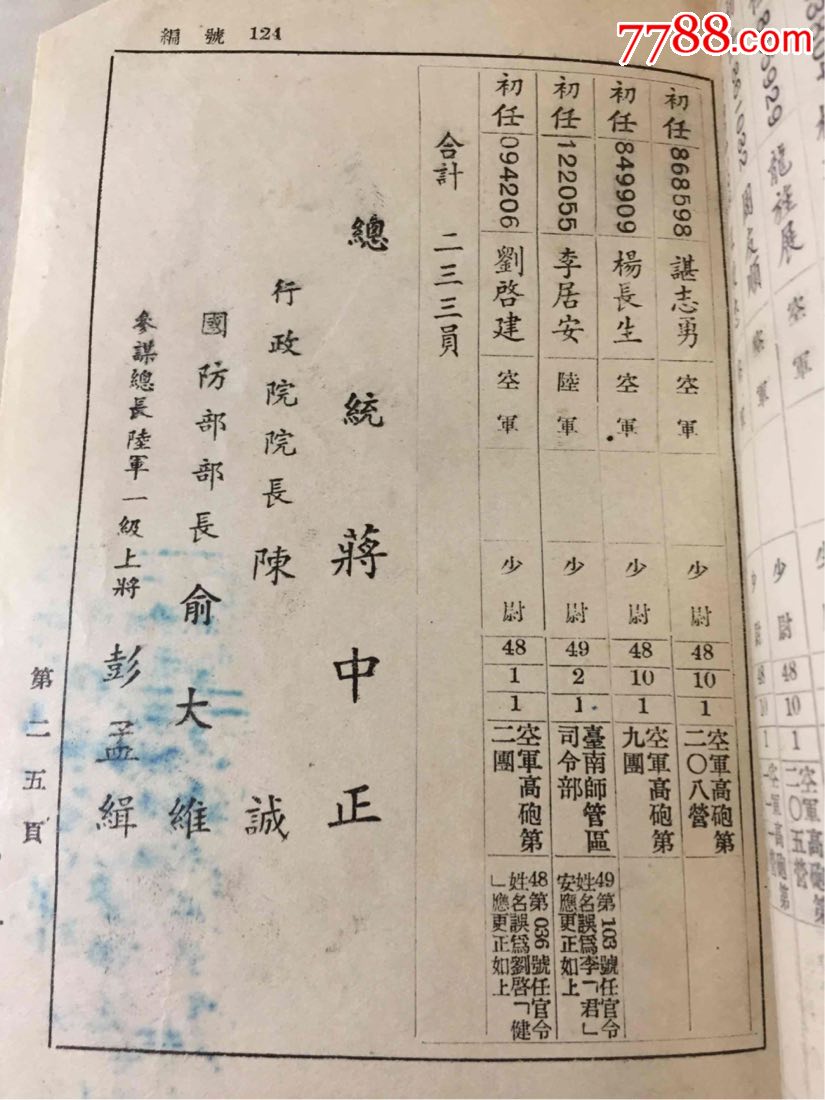 7788.com
編號 124
初任 868598 諶志勇 空軍 少尉 48 10 1 空軍高砲第二〇八營
初任 849909 楊長生 空軍 少尉 48 10 1 空軍高砲第九團
初任 122055 李居安 陸軍 少尉 49 2 1 臺南師管區司令部 49第103號任官令姓名誤爲李「君」安應更正如上
初任 094206 劉啓建 空軍 少尉 48 1 1 空軍高砲第二團 48第036號任官令姓名誤爲劉啓「健」應更正如上
合計 二三三員
總統 蔣中正
行政院院長 陳誠
國防部部長 俞大維
參謀總長陸軍一級上將 彭孟緝
第二五頁
龍旋展
空軍
少尉
48
10
1
空軍高砲第二〇五營